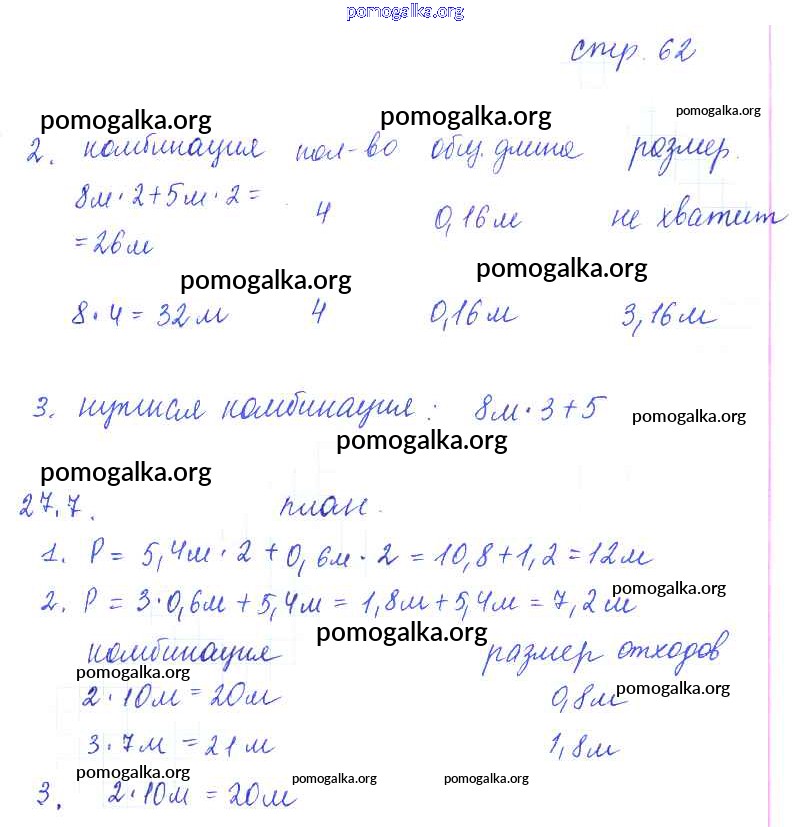 pomogalka.org
стр. 62
pomogalka.org pomogalka.org pomogalka.org
2. комбинация кол-во общ. длина размер.
8м · 2 + 5м · 2 = 4 0,16м не хватит
= 26м
pomogalka.org pomogalka.org
8 · 4 = 32м 4 0,16м 3,16м
3. нужная комбинация: 8м · 3 + 5 pomogalka.org
pomogalka.org
pomogalka.org
27.7. план.
1. P = 5,4м · 2 + 0,6м · 2 = 10,8 + 1,2 = 12м
2. P = 3 · 0,6м + 5,4м = 1,8м + 5,4м = 7,2м pomogalka.org
pomogalka.org
комбинация размер отходов
pomogalka.org pomogalka.org
2 · 10м = 20м 0,8м
3 · 7м = 21м 1,8м
pomogalka.org pomogalka.org pomogalka.org
3. 2 · 10м = 20м